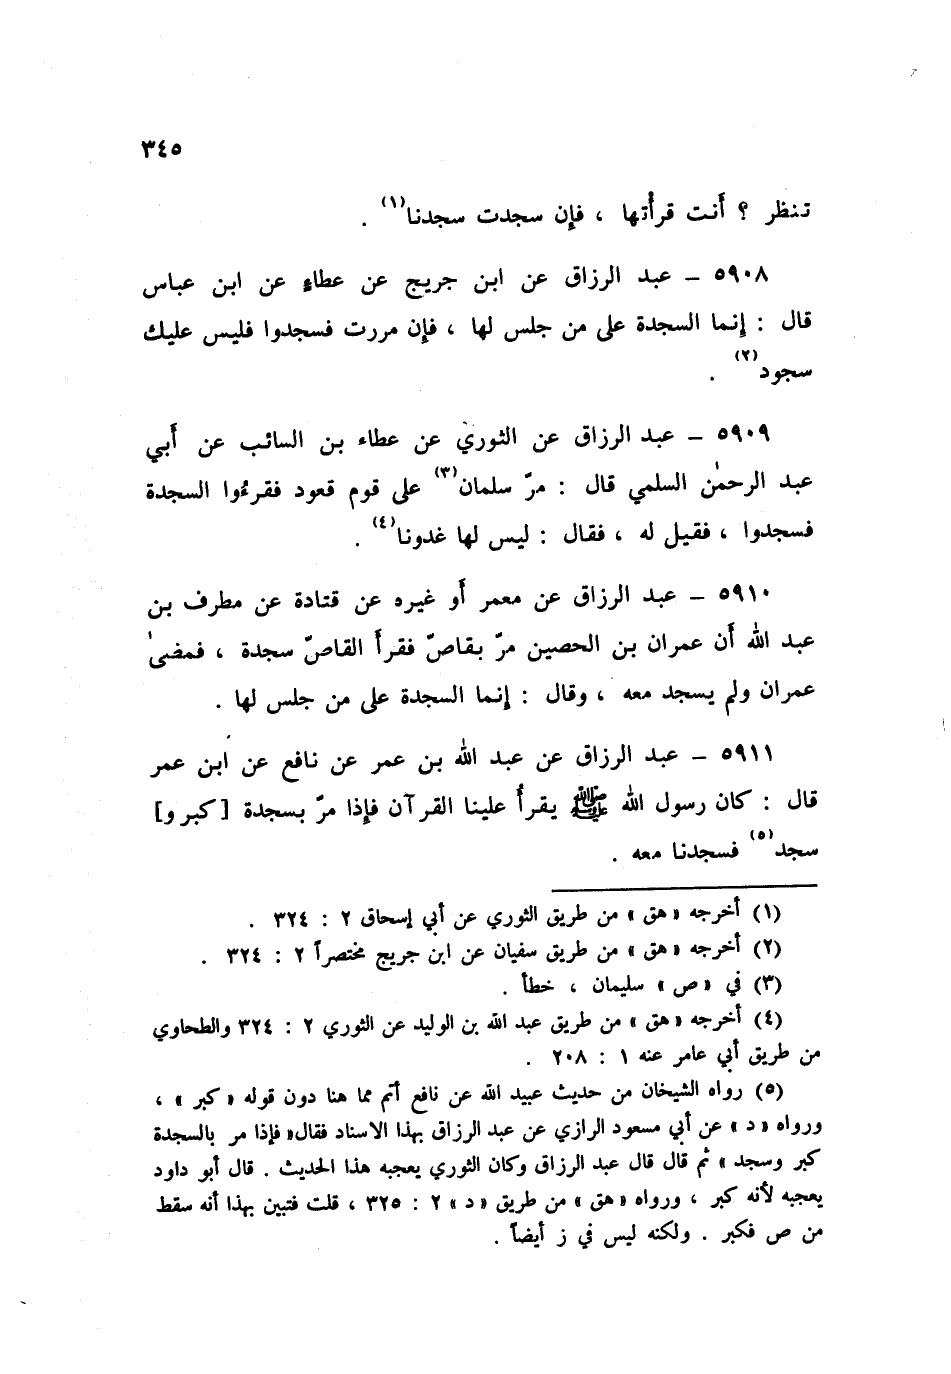 ٣٤٥
تنظر ؟ أنت قرأتها ، فإن سجدت سجدنا(١) .
٥٩٠٨ ـ عبد الرزاق عن ابن جريج عن عطاءٍ عن ابن عباس
قال : إنما السجدة على من جلس لها ، فإن مررت فسجدوا فليس عليك
سجود(٢) .
٥٩٠٩ ـ عبد الرزاق عن الثوري عن عطاء بن السائب عن أبي
عبد الرحمٰن السلمي قال : مرّ سلمان(٣) على قوم قعود فقرءُوا السجدة
فسجدوا ، فقيل له ، فقال : ليس لها غدونا(٤) .
٥٩١٠ ـ عبد الرزاق عن معمر أو غيره عن قتادة عن مطرف بن
عبد الله أن عمران بن الحصين مرّ بقاصّ فقرأ القاصّ سجدة ، فمضىٰ
عمران ولم يسجد معه ، وقال : إنما السجدة على من جلس لها .
٥٩١١ ـ عبد الرزاق عن عبد الله بن عمر عن نافع عن ابن عمر
قال : كان رسول الله ﷺ يقرأُ علينا القرآن فإذا مرّ بسجدة [كبر و]
سجد(٥) فسجدنا معه .
(١) أخرجه «هق» من طريق الثوري عن أبي إسحاق ٢ : ٣٢٤ .
(٢) أخرجه «هق» من طريق سفيان عن ابن جريج مختصراً ٢ : ٣٢٤ .
(٣) في «ص» سليمان ، خطأ .
(٤) أخرجه «هق» من طريق عبد الله بن الوليد عن الثوري ٢ : ٣٢٤ والطحاوي
من طريق أبي عامر عنه ١ : ٢٠٨ .
(٥) رواه الشيخان من حديث عبيد الله عن نافع أتم مما هنا دون قوله «كبر» ،
ورواه «د» عن أبي مسعود الرازي عن عبد الرزاق بهذا الاسناد فقال«فإذا مر بالسجدة
كبر وسجد» ثم قال قال عبد الرزاق وكان الثوري يعجبه هذا الحديث . قال أبو داود
يعجبه لأنه كبر ، ورواه «هق» من طريق «د» ٢ : ٣٢٥ ، قلت فتبين بهذا أنه سقط
من ص فكبر . ولكنه ليس في ز أيضاً .